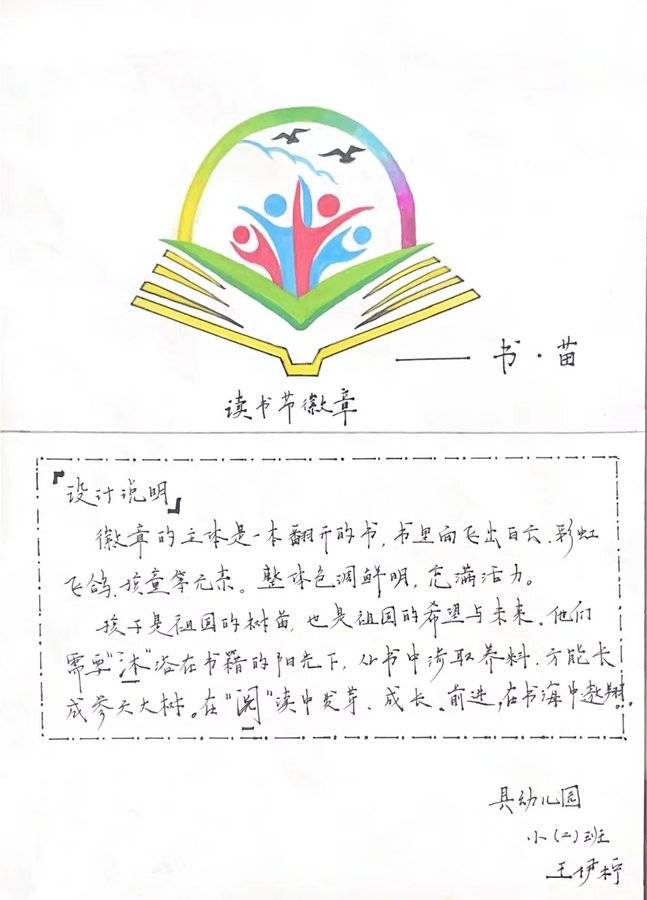 —— 书·苗
读书节徽章
『设计说明』
徽章的主体是一本翻开的书,书里向飞出白云、彩虹
飞鸽、孩童等元素。整体色调鲜明,充满活力。
孩子是祖国的树苗,也是祖国的希望与未来。他们
需要“沐”浴在书籍的阳光下,从书中汲取养料,方能长
成参天大树。在“阅”读中发芽、成长、前进,在书海中翱翔。
县幼儿园
小(二)班
王伊柠